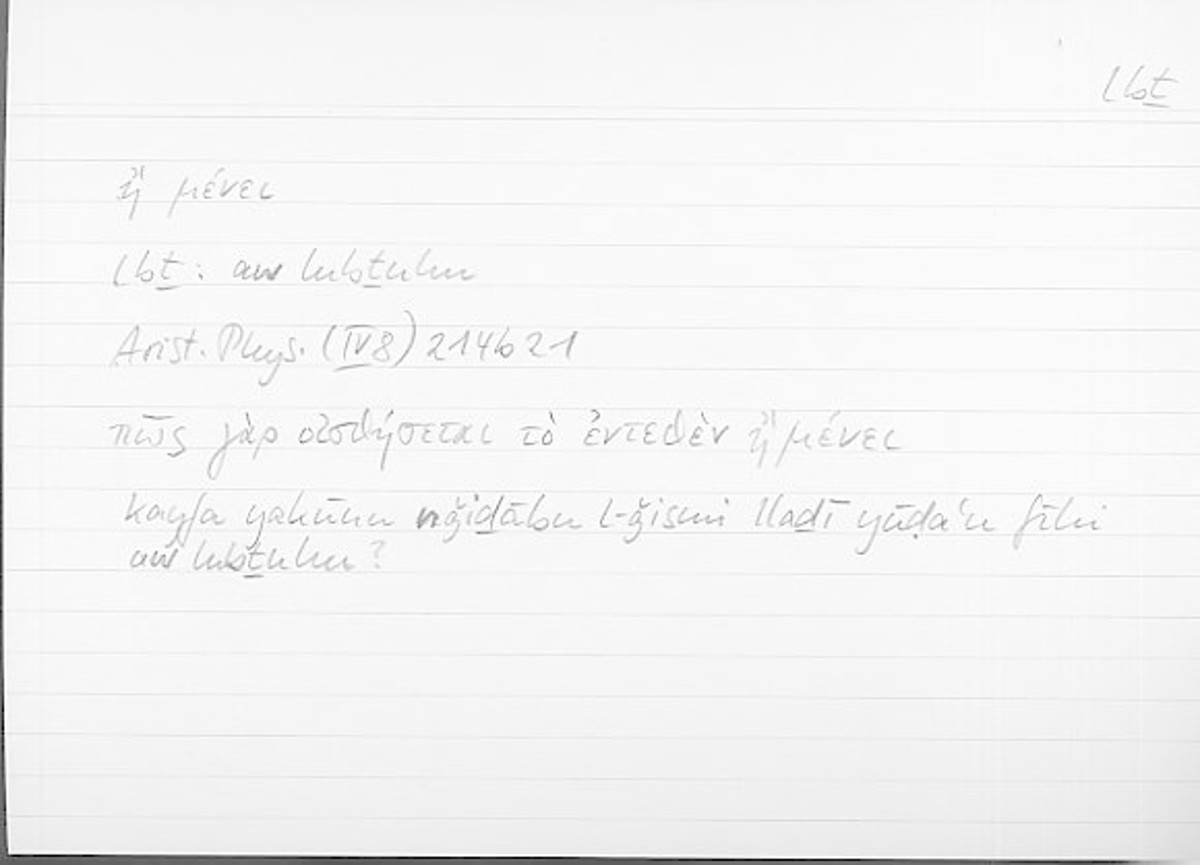 lbṯ
ἢ μένει
lbṯ : aw lubṯuhu
Arist. Phys. (IV 8) 214b21
πῶς γὰρ οἰσθήσεται τὸ ἐντεθὲν ἢ μένει
kayfa yakūnu nǧiḏābu l-ǧismi llaḏī yūḍaʿu fīhi
aw lubṯuhu?